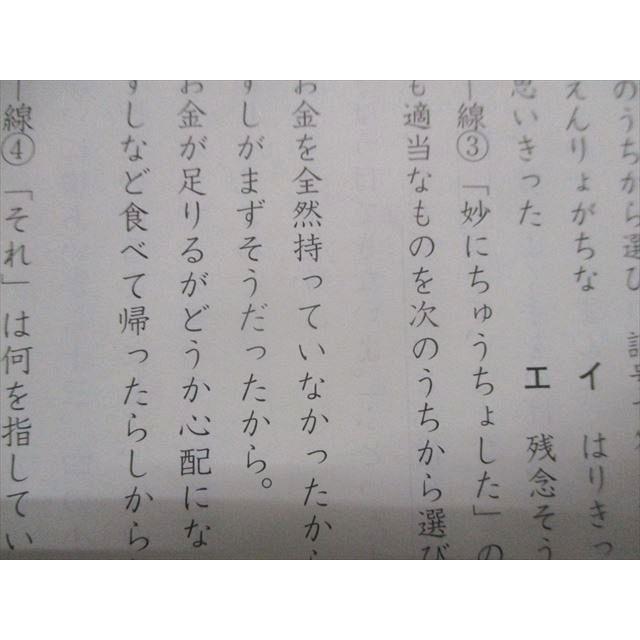 のうちから選び
えんりょがちな　イ　はりきっ
思いきった　エ　残念そう
ー線③「妙にちゅうちょした」の
も適当なものを次のうちから選び
お金を全然持っていなかったから
すしがまずそうだったから。
お金が足りるがどうか心配にな
すしなど食べて帰ったらしから
ー線④「それ」は何を指してい